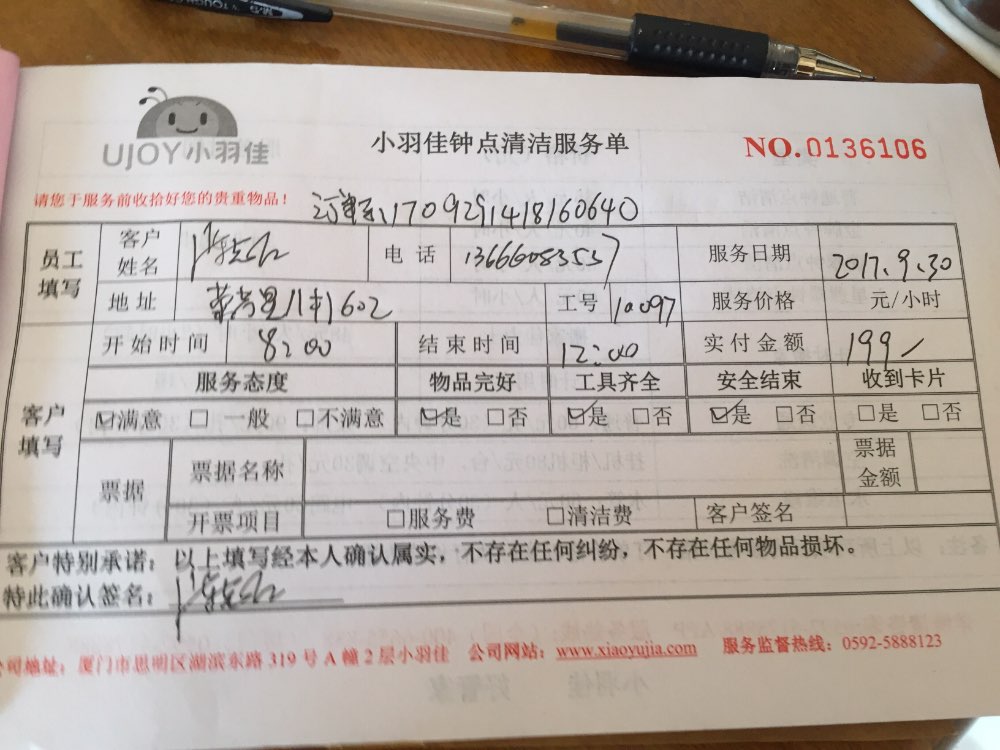 UJOY小羽佳
小羽佳钟点清洁服务单
NO.0136106
请您于服务前收拾好您的贵重物品！
1709291418160640
员工填写 客户姓名 电话 13666083537 服务日期 2017.9.30
地址 荣芳里八卦1602 工号 10097 服务价格 元/小时
开始时间 8:00 结束时间 12:00 实付金额 199
客户填写 服务态度 物品完好 工具齐全 安全结束 收到卡片
☑满意 □一般 □不满意 ☑是 □否 ☑是 □否 ☑是 □否 □是 □否
票据 票据名称 票据金额
开票项目 □服务费 □清洁费 客户签名
客户特别承诺：以上填写经本人确认属实，不存在任何纠纷，不存在任何物品损坏。
特此确认签名：
公司地址：厦门市思明区湖滨东路 319 号 A 幢 2 层小羽佳 公司网站：www.xiaoyujia.com 服务监督热线：0592-5888123